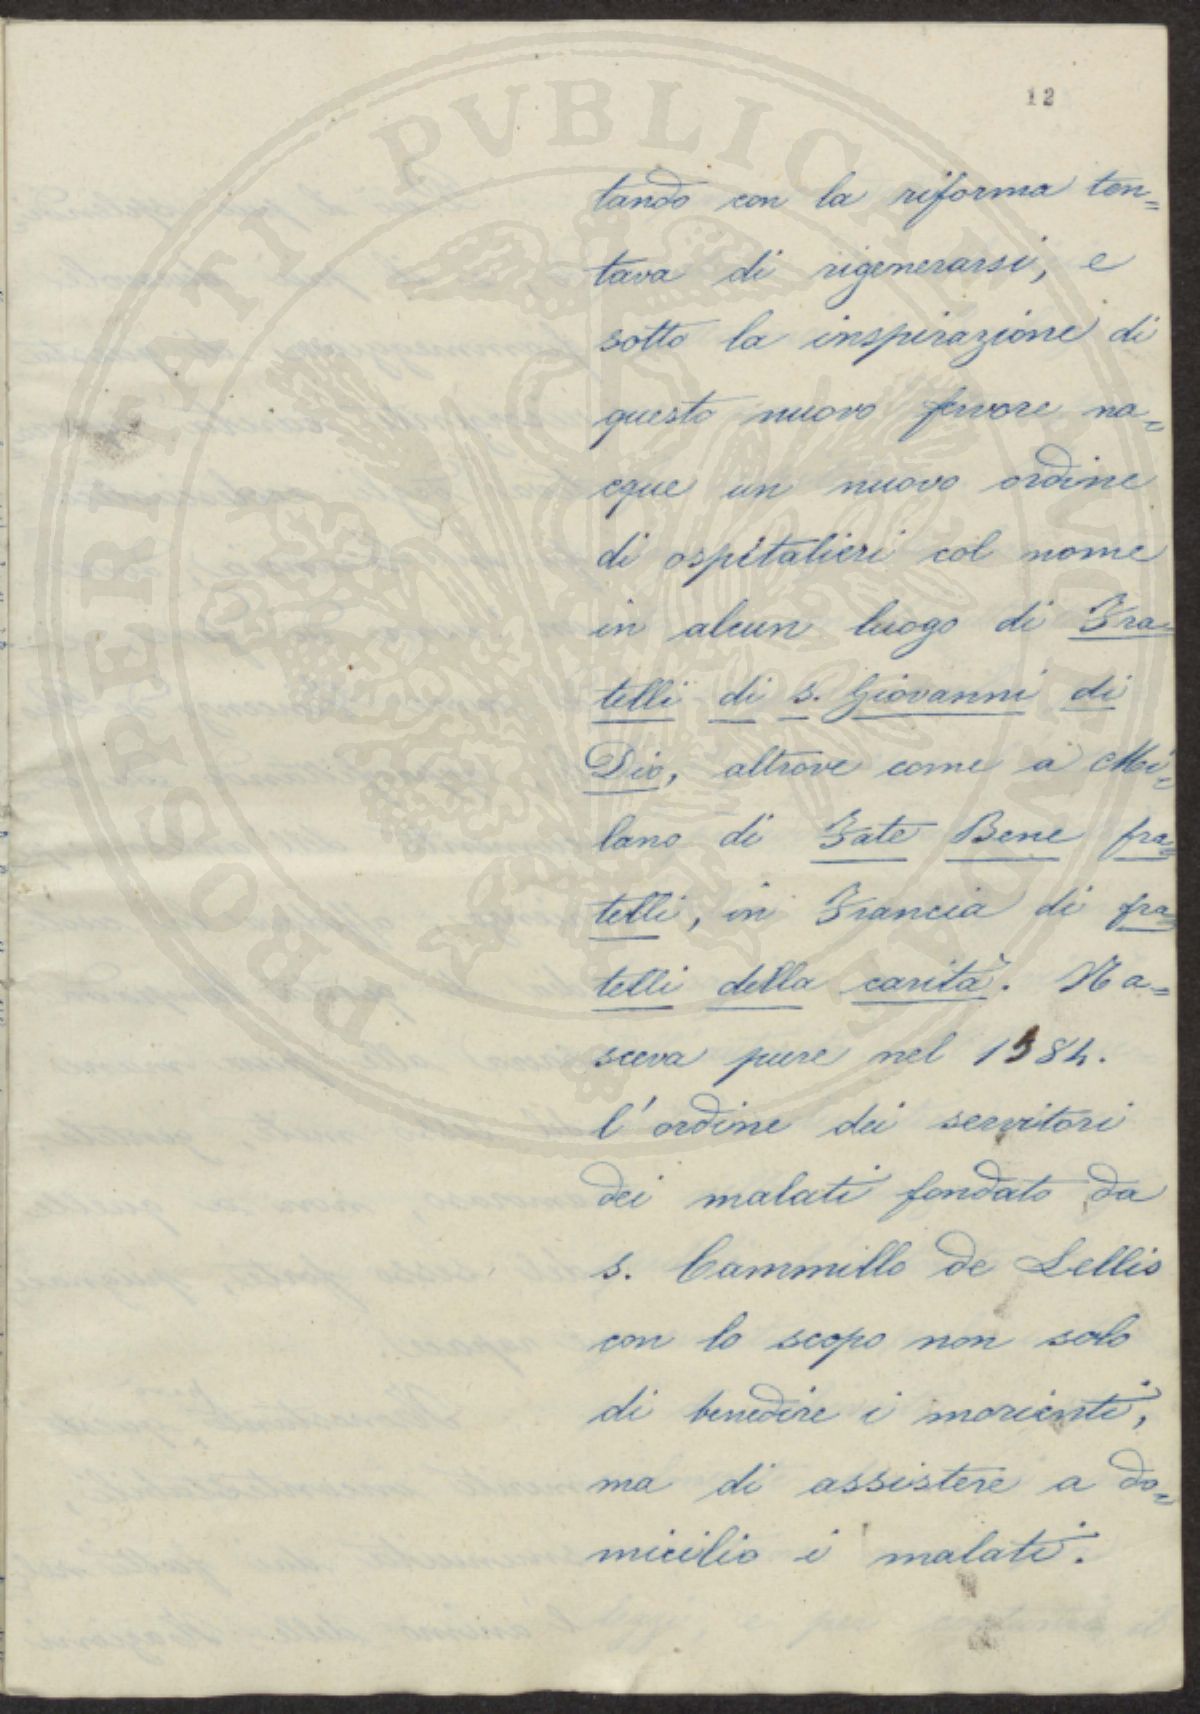 12
tando con la riforma ten=
tava di rigenerarsi, e
sotto la inspirazione di
questo nuovo fervore na=
cque un nuovo ordine
di ospitalieri col nome
in alcun luogo di Fra=
telli di s. Giovanni di
Dio, altrove come a Mi=
lano di Fate Bene fra=
telli, in Francia di fra=
telli della carità. Na=
sceva pure nel 1584.
l'ordine dei servitori
dei malati fondato da
s. Cammillo de Lellis
con lo scopo non solo
di benedire i morienti,
ma di assistere a do=
micilio i malati.
PROSPERITATI PVBLICAE